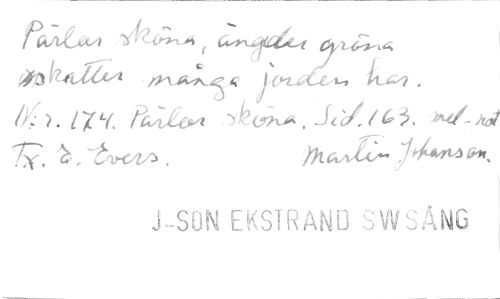 Pärlor sköna, ängder gröna
skatter många jorden har.
N:r. 174. Pärlor sköna. Sid. 163. mel-not
Tx. E. Evers. Martin Johanson.
J-SON EKSTRAND SWSÅNG